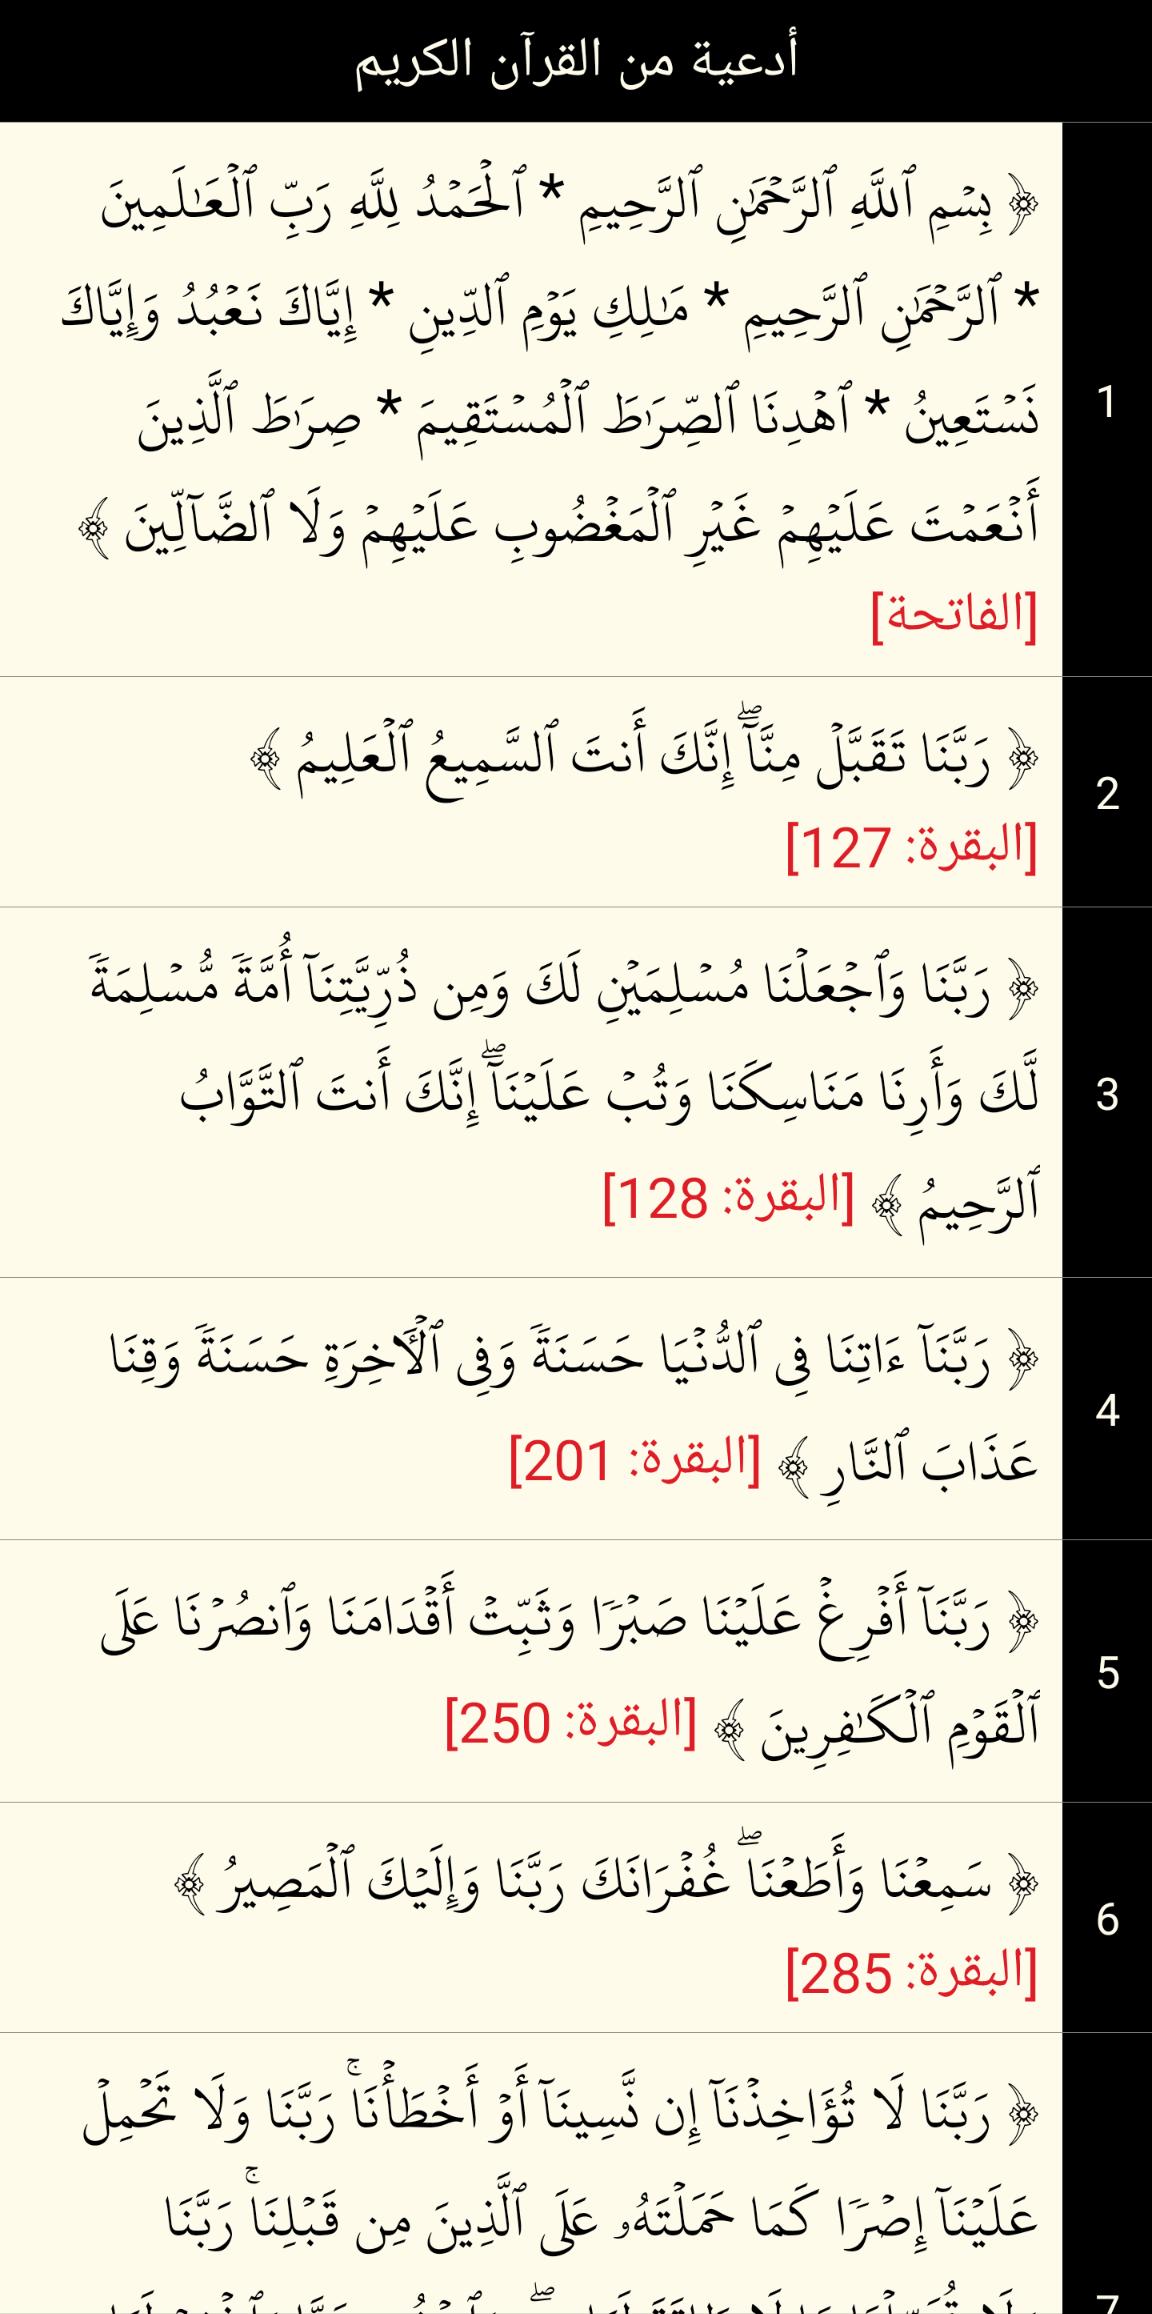 أدعية من القرآن الكريم
﴿ بِسۡمِ ٱللَّهِ ٱلرَّحۡمَٰنِ ٱلرَّحِيمِ * ٱلۡحَمۡدُ لِلَّهِ رَبِّ ٱلۡعَٰلَمِينَ
* ٱلرَّحۡمَٰنِ ٱلرَّحِيمِ * مَٰلِكِ يَوۡمِ ٱلدِّينِ * إِيَّاكَ نَعۡبُدُ وَإِيَّاكَ
1
نَسۡتَعِينُ * ٱهۡدِنَا ٱلصِّرَٰطَ ٱلۡمُسۡتَقِيمَ * صِرَٰطَ ٱلَّذِينَ
أَنۡعَمۡتَ عَلَيۡهِمۡ غَيۡرِ ٱلۡمَغۡضُوبِ عَلَيۡهِمۡ وَلَا ٱلضَّآلِّينَ ﴾
[الفاتحة]
﴿ رَبَّنَا تَقَبَّلۡ مِنَّآۖ إِنَّكَ أَنتَ ٱلسَّمِيعُ ٱلۡعَلِيمُ ﴾
2
[البقرة: 127]
﴿ رَبَّنَا وَٱجۡعَلۡنَا مُسۡلِمَيۡنِ لَكَ وَمِن ذُرِّيَّتِنَآ أُمَّةٗ مُّسۡلِمَةٗ
3
لَّكَ وَأَرِنَا مَنَاسِكَنَا وَتُبۡ عَلَيۡنَآۖ إِنَّكَ أَنتَ ٱلتَّوَّابُ
ٱلرَّحِيمُ ﴾ [البقرة: 128]
﴿ رَبَّنَآ ءَاتِنَا فِي ٱلدُّنۡيَا حَسَنَةٗ وَفِي ٱلۡأٓخِرَةِ حَسَنَةٗ وَقِنَا
4
عَذَابَ ٱلنَّارِ ﴾ [البقرة: 201]
﴿ رَبَّنَآ أَفۡرِغۡ عَلَيۡنَا صَبۡرٗا وَثَبِّتۡ أَقۡدَامَنَا وَٱنصُرۡنَا عَلَى
5
ٱلۡقَوۡمِ ٱلۡكَٰفِرِينَ ﴾ [البقرة: 250]
﴿ سَمِعۡنَا وَأَطَعۡنَاۖ غُفۡرَانَكَ رَبَّنَا وَإِلَيۡكَ ٱلۡمَصِيرُ ﴾
6
[البقرة: 285]
﴿ رَبَّنَا لَا تُؤَاخِذۡنَآ إِن نَّسِينَآ أَوۡ أَخۡطَأۡنَاۚ رَبَّنَا وَلَا تَحۡمِلۡ
عَلَيۡنَآ إِصۡرٗا كَمَا حَمَلۡتَهُۥ عَلَى ٱلَّذِينَ مِن قَبۡلِنَاۚ رَبَّنَا
7